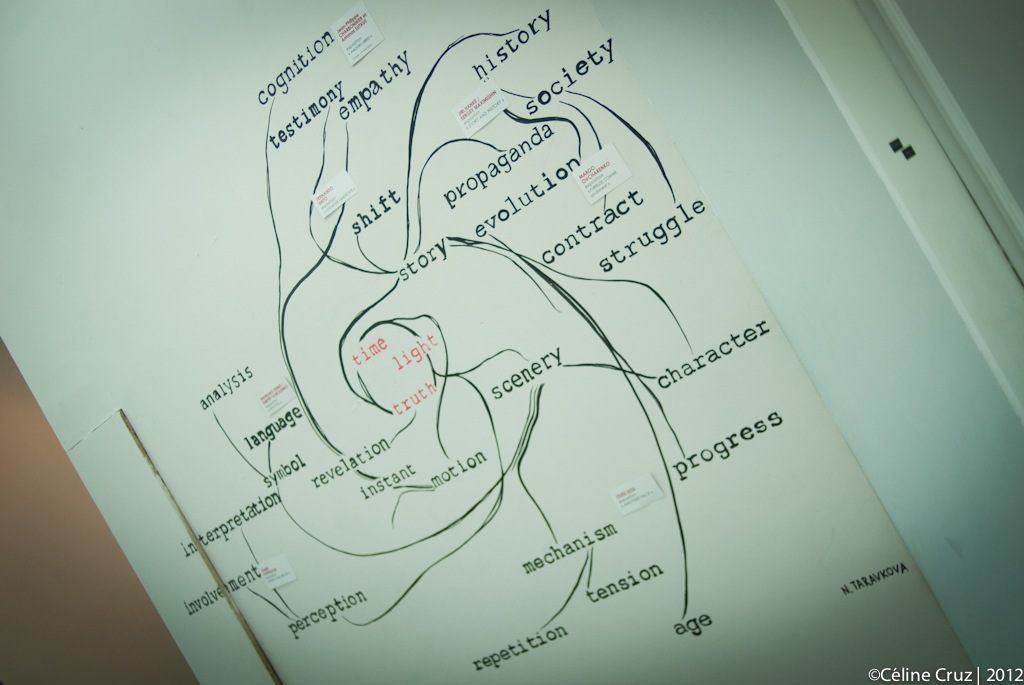 cognition
testimony
empathy
history
society
propaganda
evolution
contract
struggle
shift
story
time
light
truth
scenery
character
progress
analysis
language
symbol
interpretation
involvement
perception
revelation
instant
motion
mechanism
tension
repetition
age
MARGO
OVCHARENKO
N.TARAVKOVA
©Céline Cruz | 2012